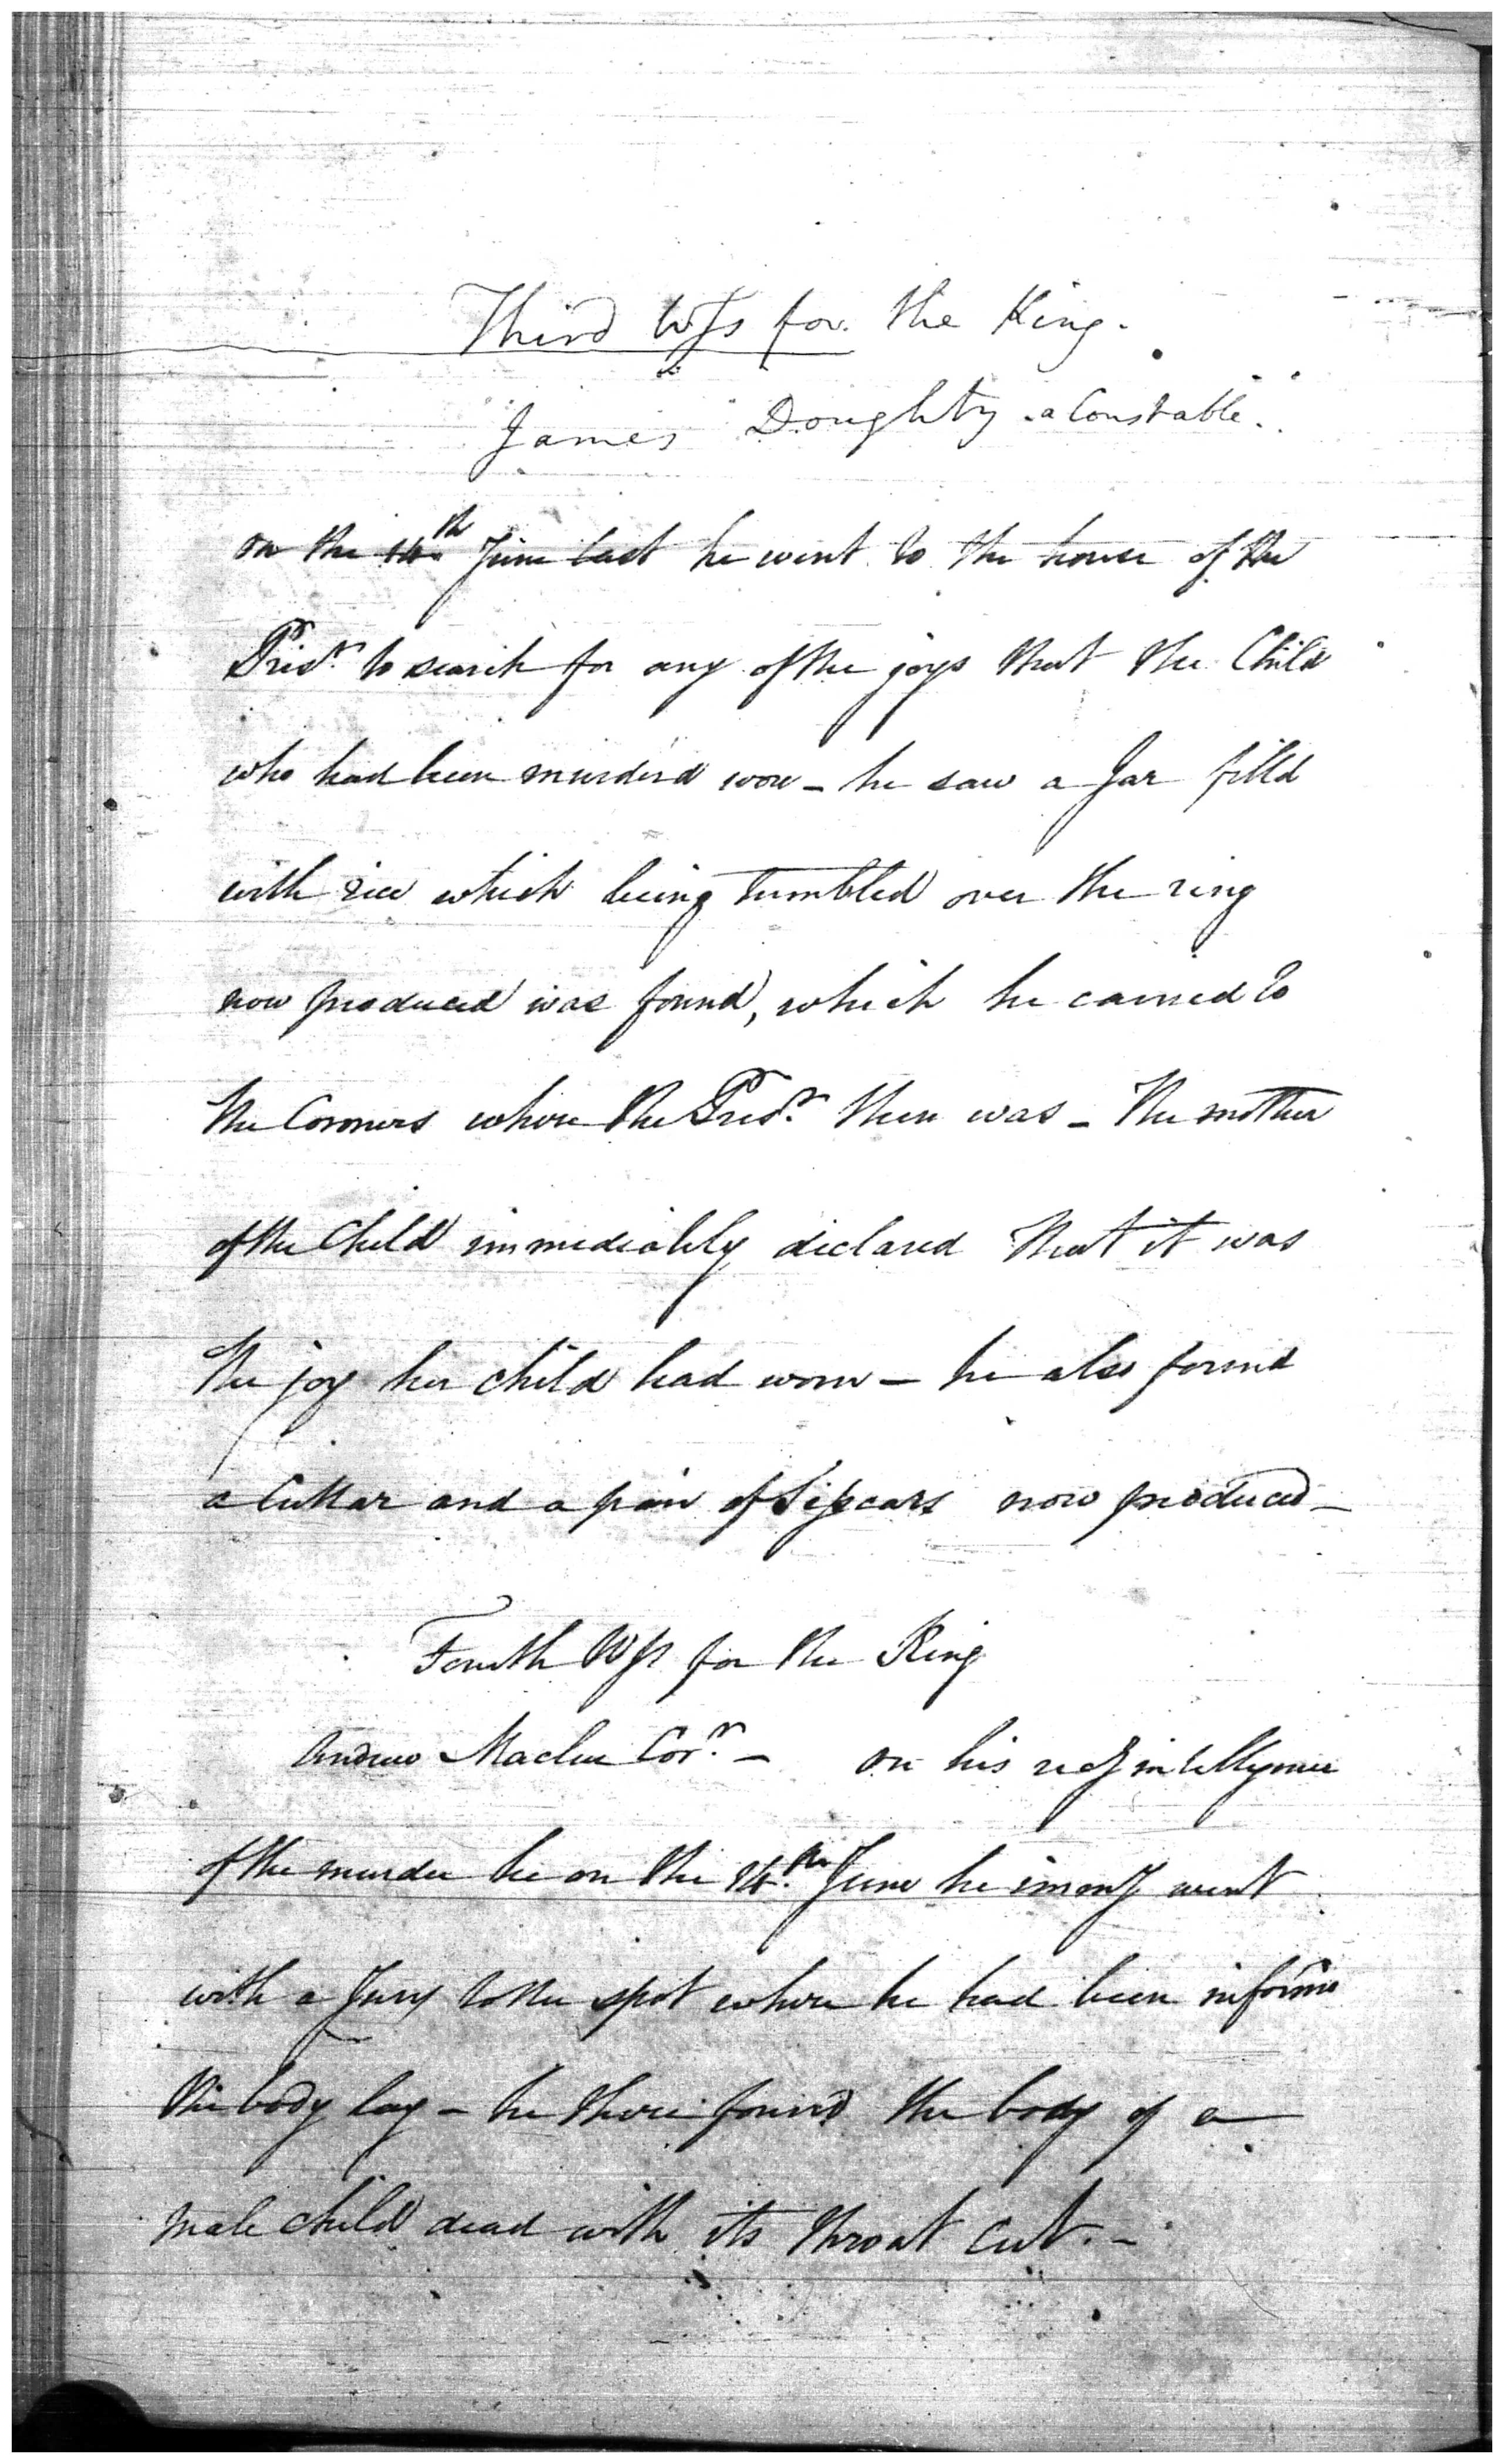 Third Wss for the King.
James Doughty a Constable.
on the 14th June last he went to the house of the
Prisr. to search for any of the joys that the Child
who had been murderd wore - he saw a Jar filld
with rice which being tumbled over the ring
now produced was found, which he carried to
the Coroners where the Prisr. then was - The mother
of the Child immediately declared that it was
the joy her child had worn - he also found
a Cuttar and a pair of now produced -
Fourth Wss for the King
Andrew Corr. - on his intelligence
of the murder he on the 14th June he went
with a Jury to the spot where he had been informd
the body lay - he there found the body of a
male child dead with its throat cut. -